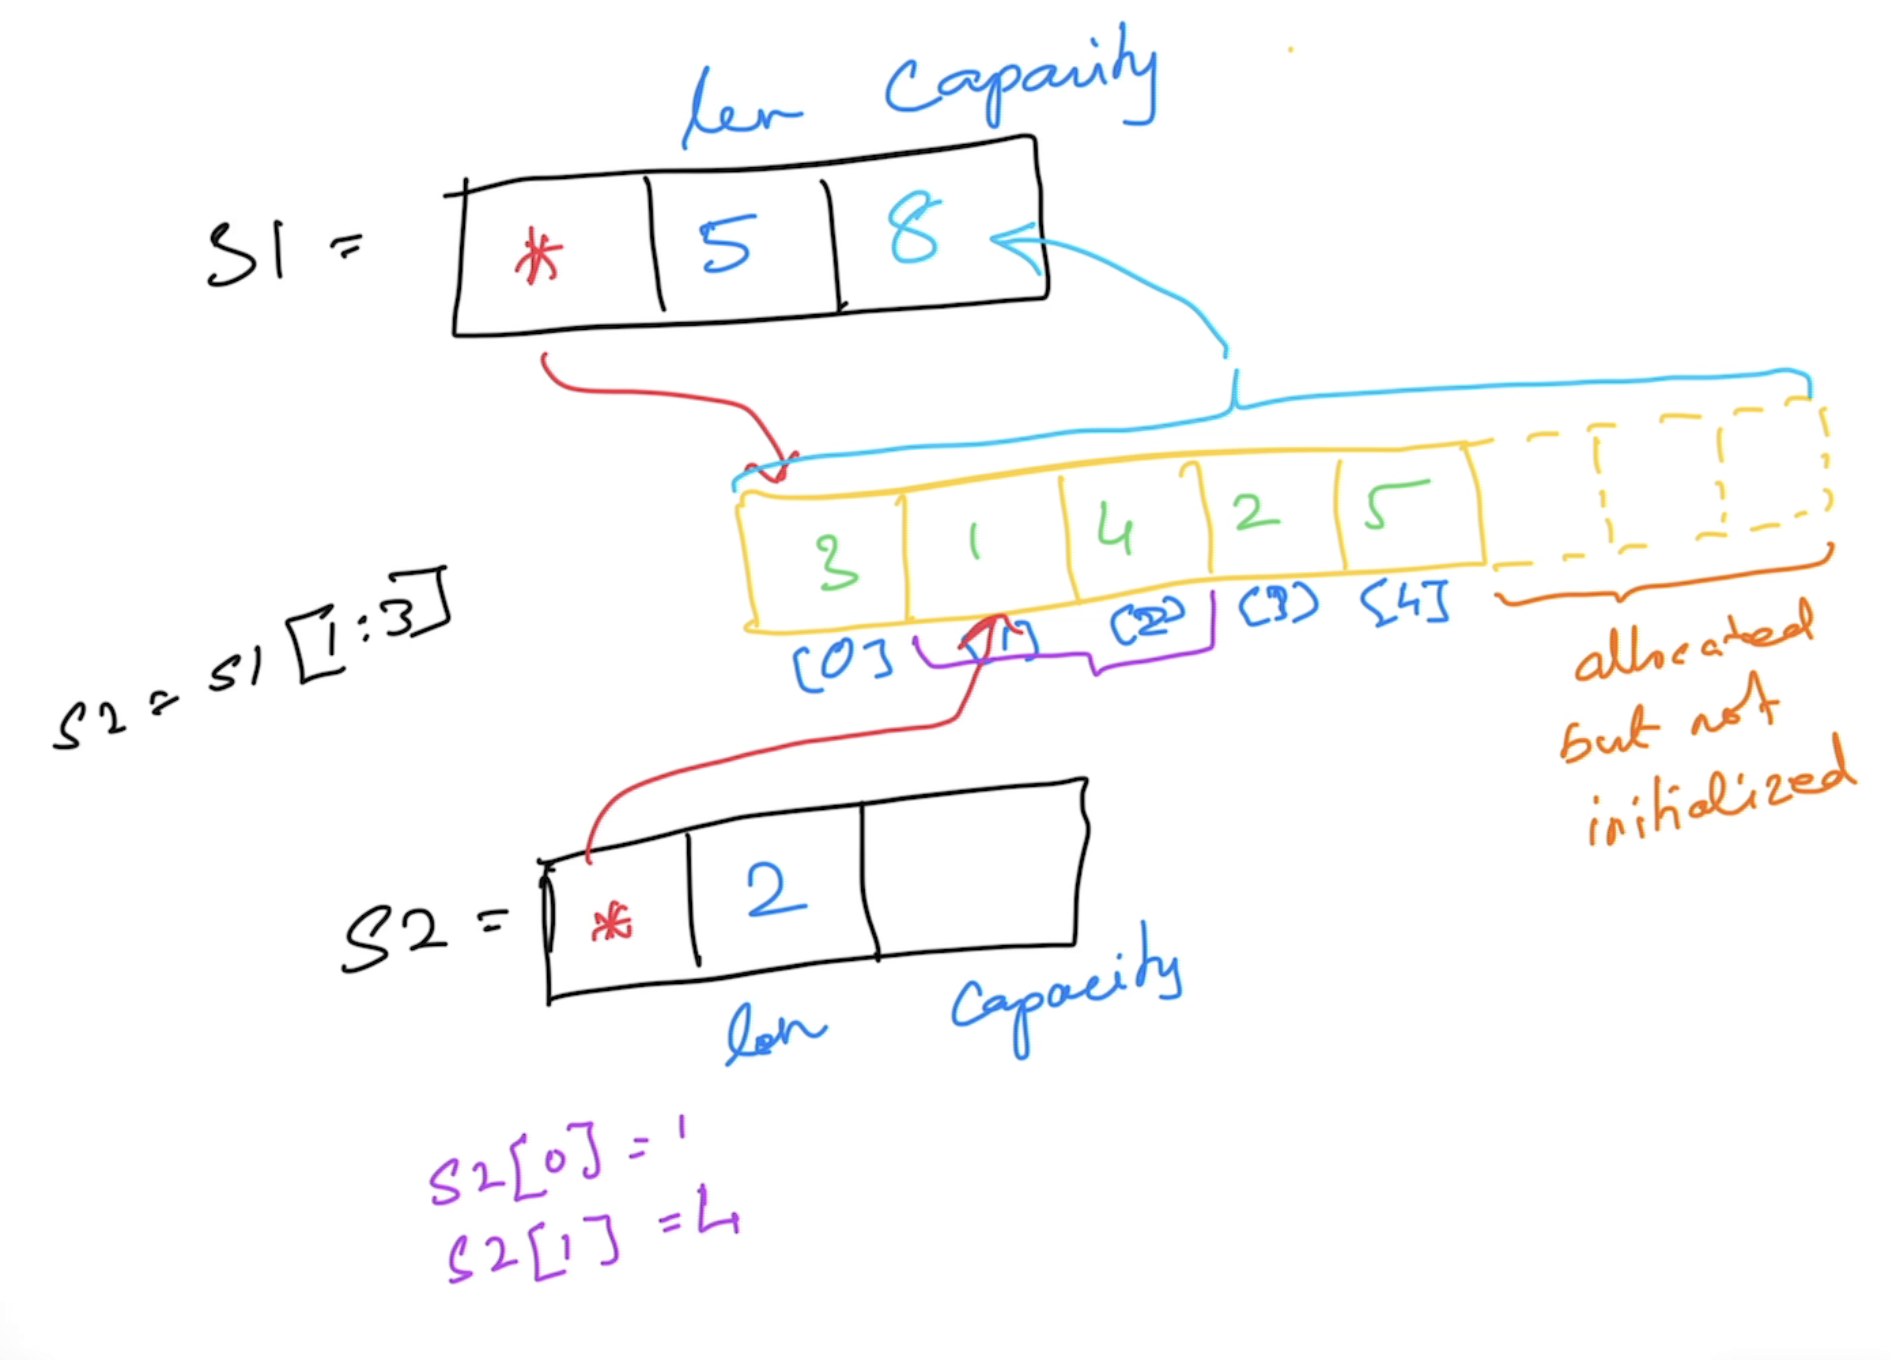 len Capacity
S1 = * 5 8
3 1 4 2 5
[0] [1] [2] [3] [4]
S2 = S1 [1:3]
allocated
but not
initialized
S2 = * 2
len Capacity
S2[0] = 1
S2[1] = 4